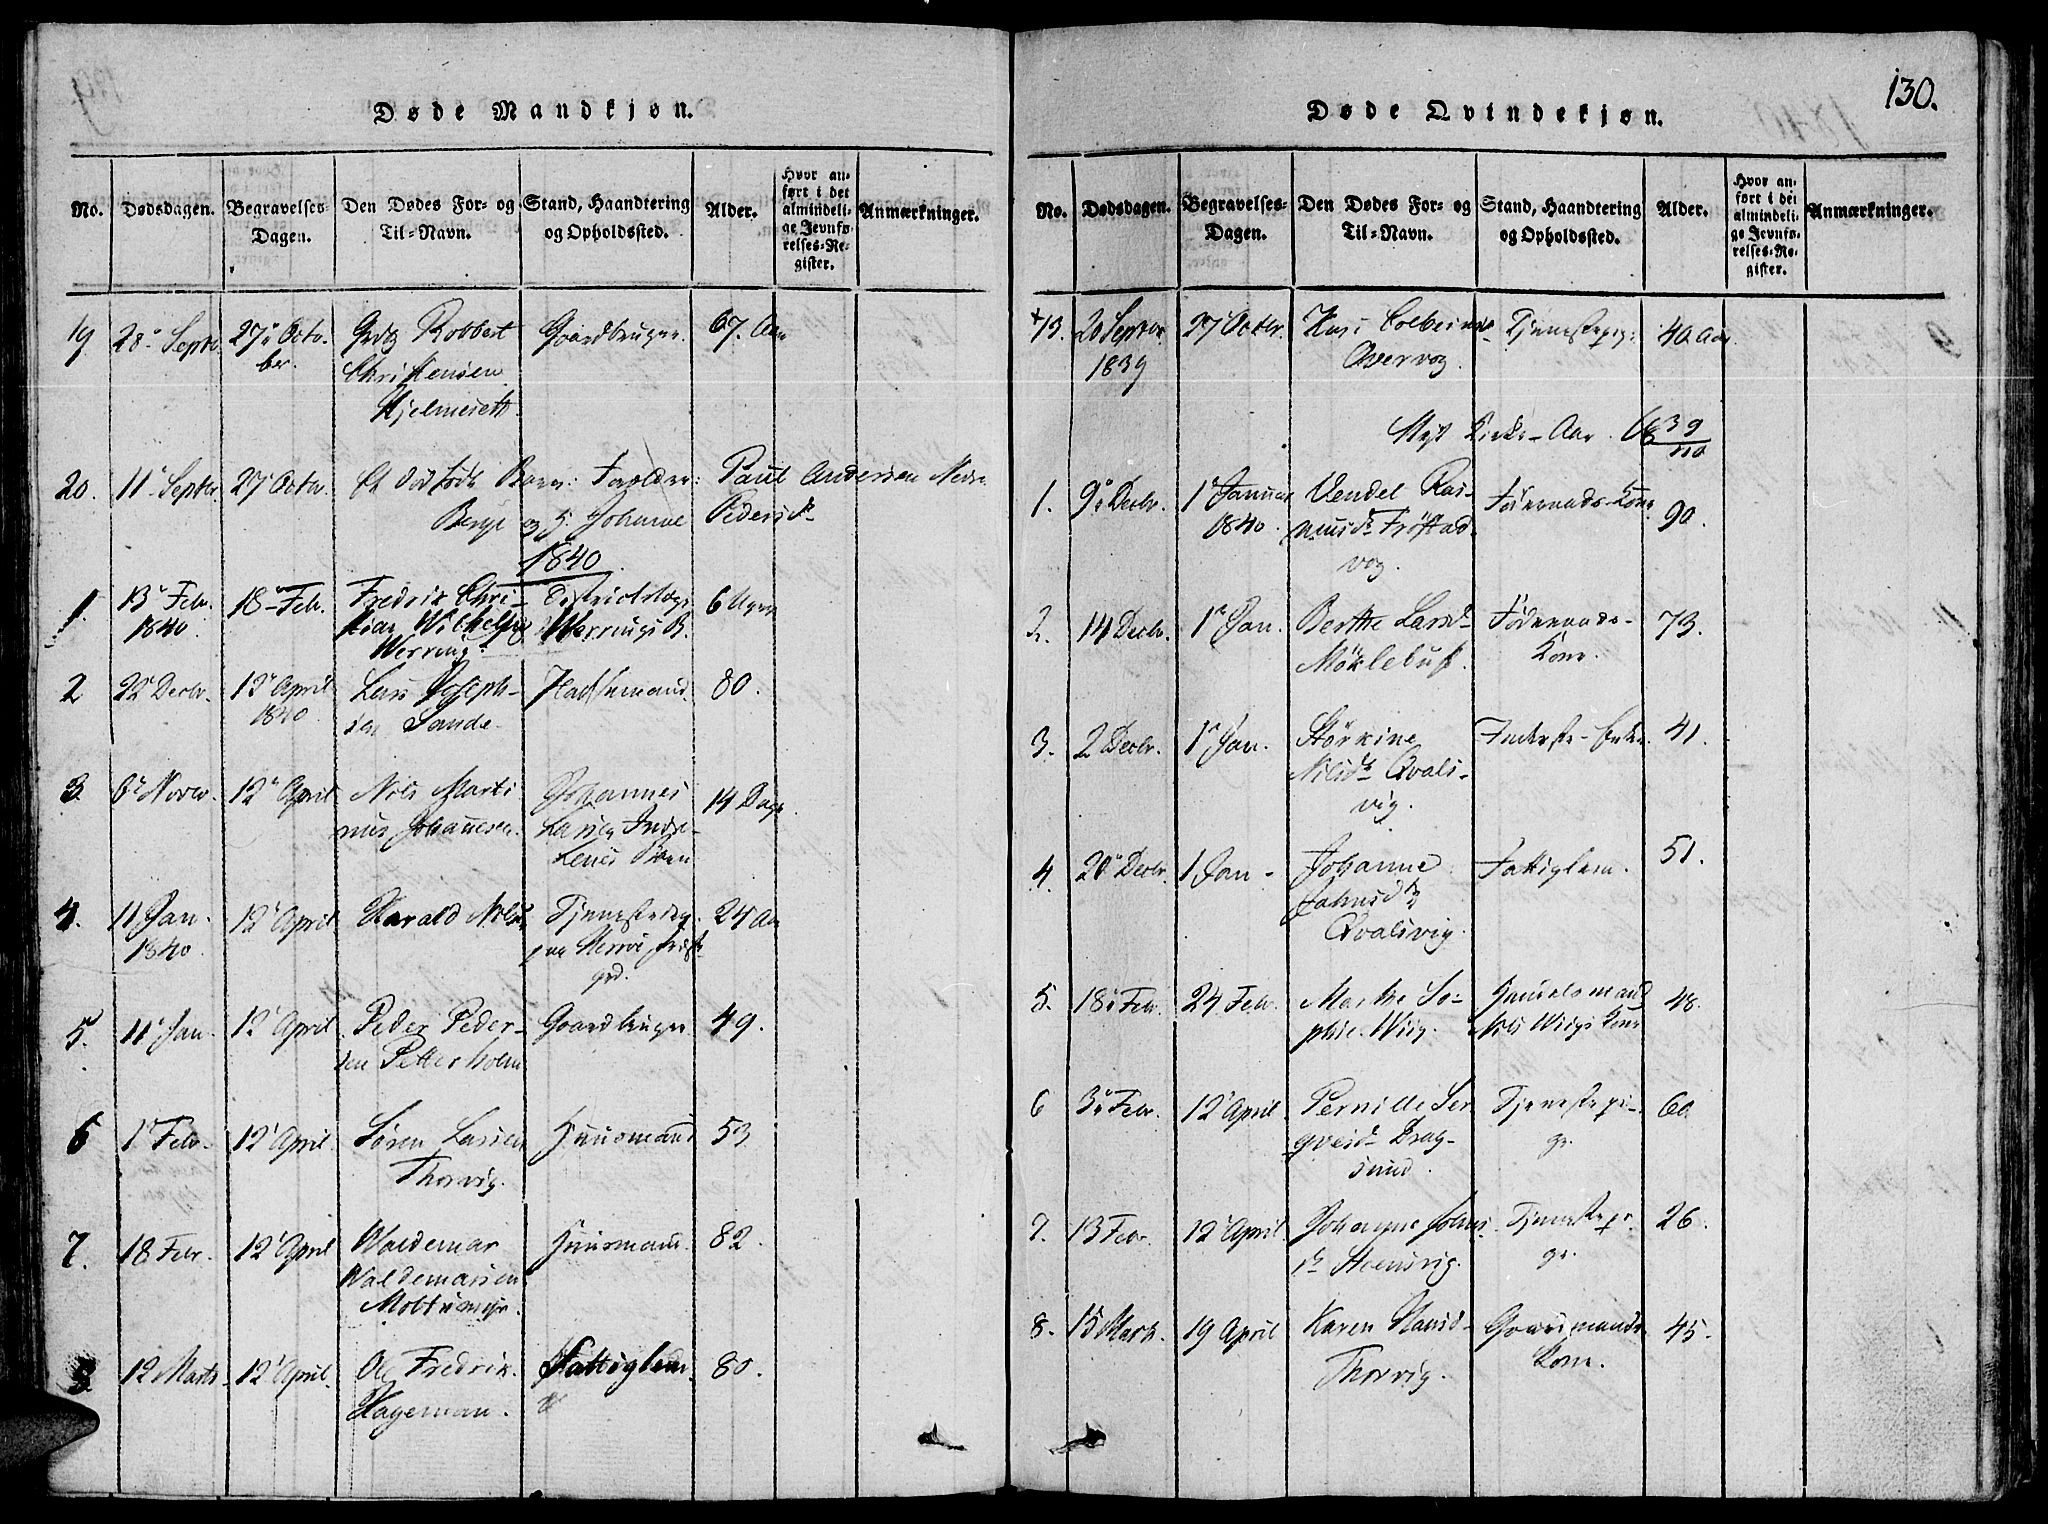 Døde Mandkjøn.
No. Dødsdagen. Begravelses-Dagen. Den Dødes For- og Til-Navn. Stand, Haandtering og Opholdssted. Alder. Hvor anført i det almindelige Jevnførelses-Register. Anmærkninger.
19 28 Septbr 27 Octo-
ber. Robbert
Christensen
Hjelmesett. Gaardbruger 67. Aar
20. 11 Septbr 27 Octbr. Et dødfødt Barn: Forældre: Paul Andersen Nedre
Berge og H. Johanne Pedersdr
1840
1. 13 Febr.
1840. 18 Febr. Fredrik Chri-
stian Wilhelm
Werring. Districtslæge
Werrings B. 6 Uger
2 22 Decbr. 12 April
1840. Lars Joseph-
sen Sande. 80.
3. 6 Novbr. 12 April Nils Marti
nus Johannesen. Johannes
Larsen Indre-
Barn 14 Dage
4. 11 Jan.
1840. 12 April Harald Nils. Tjenestedreng
paa Herrøe Præste
grd. 24 Aar
5. 11 Jan. 12 April. Peder Peder-
sen Petterholm Gaardbruger 49.
6 1 Febr. 12 April. Søren Larsen
Thorvig. Huusmand 53
7. 18 Febr. 12 April Waldemar
Waldemarsen
Moltumyr. Huusmand. 82.
8. 12 Marts. 12 April. Ole Fredrik
Hageman. Fattiglem 80.
130.
Døde Qvindekjøn.
No. Dødsdagen. Begravelses-Dagen. Den Dødes For- og Til-Navn. Stand, Haandtering og Opholdssted. Alder. Hvor anført i det almindelige Jevnførelses-Register. Anmærkninger.
+13. 20 Septbr
1839 27 Octbr. Kari Colbeins
Overvog. Tjenestepige 40. Aar
Nyt Kirke-Aar 1839/40
1. 9 Decbr. 1 Januar
1840. Vendel Ras-
musdr Frøstad
vog. Föderaads-Kone 90.
2. 14 Decbr. 1 Jan. Berthe Larsd
Möklebust. Föderaads-
Kone. 73.
3. 2 Decbr. 1 Jan. Störkine
Nilsdr Qvals-
vig. Inderste-Enke 41.
4. 20 Decbr. 1 Jan. Johanne
Johnsdr
Qvalsvig. Fattiglem. 51.
5. 18 Febr. 24 Febr. Marthe So-
phie Wiig. Handelsmand
Nils Wiigs Kone 48.
6 3 Febr. 12 April. Pernille Ser
qvesd Drag-
sund. Tjenestepi-
ge. 60.
7. 13 Febr. 12 April Johanne Johns
dr Steensvig. Tjenestepi
ge. 26.
8. 15 Marts. 19 April Karen Hansd
Thorvig. Gaardmands
Kone. 45.